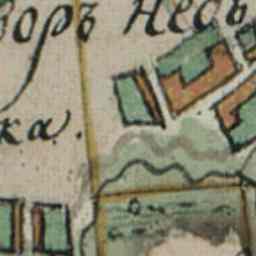 воръ Несъ
ка.